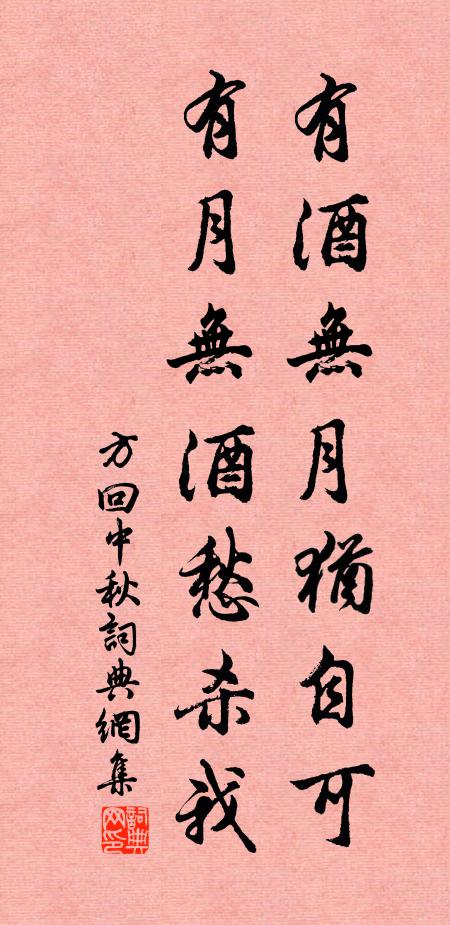 有酒無月猶自可
有月無酒愁杀我
方回中秋詞典網集
詞典网印